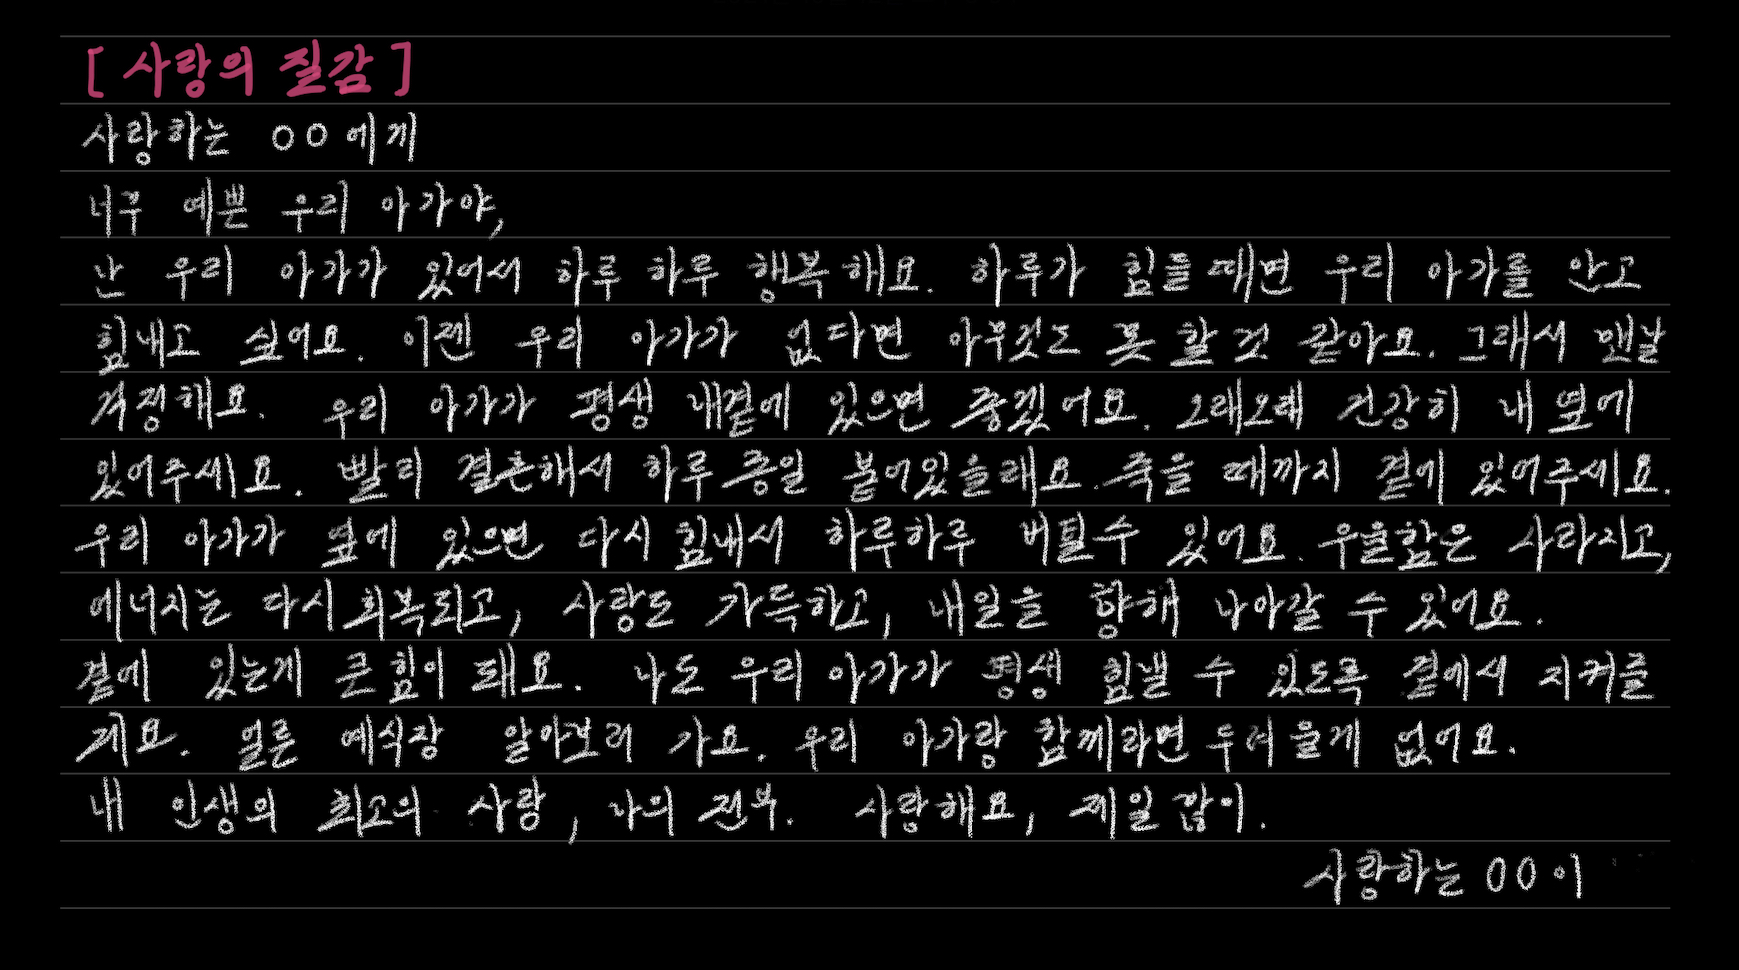 [ 사랑의 질감 ]
사랑하는 OO에게
너무 예쁜 우리 아가야,
난 우리 아가가 있어서 하루 하루 행복해요. 하루가 힘들때면 우리 아가를 안고
힘내고 싶어요. 이젠 우리 아가가 없다면 아무것도 못 할 것 같아요. 그래서 맨날
걱정해요. 우리 아가가 평생 내곁에 있으면 좋겠어요. 오래오래 건강히 내 옆에
있어주세요. 빨리 결혼해서 하루 종일 붙어있을래요. 죽을 때까지 곁에 있어주세요.
우리 아가가 옆에 있으면 다시 힘내서 하루하루 버틸수 있어요. 우울함은 사라지고,
에너지는 다시 회복되고, 사랑도 가득하고, 내일을 향해 나아갈 수 있어요.
곁에 있는게 큰 힘이 돼요. 나도 우리 아가가 평생 힘낼 수 있도록 곁에서 지켜줄
게요. 얼른 예식장 알아보러 가요. 우리 아가랑 함께라면 두려울게 없어요.
내 인생의 최고의 사랑, 나의 전부. 사랑해요, 제일 많이.
사랑하는 OO이